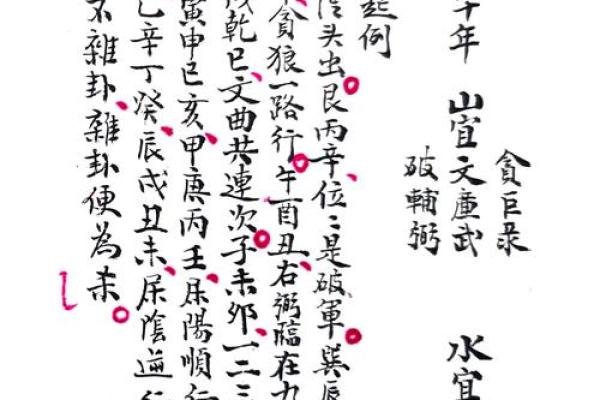 貪巨彔
年 山宜文廉武 水宜
破輔弼
起例
头出艮丙辛位〻是破軍巽辰
貪狼一路行午酉丑右弼臨在九
乾巳文曲共連次子未卯一二三
寅申巳亥甲庚丙壬居陽順行
乙辛丁癸辰戌丑未居陰逆行
不雜卦雜卦便為杀